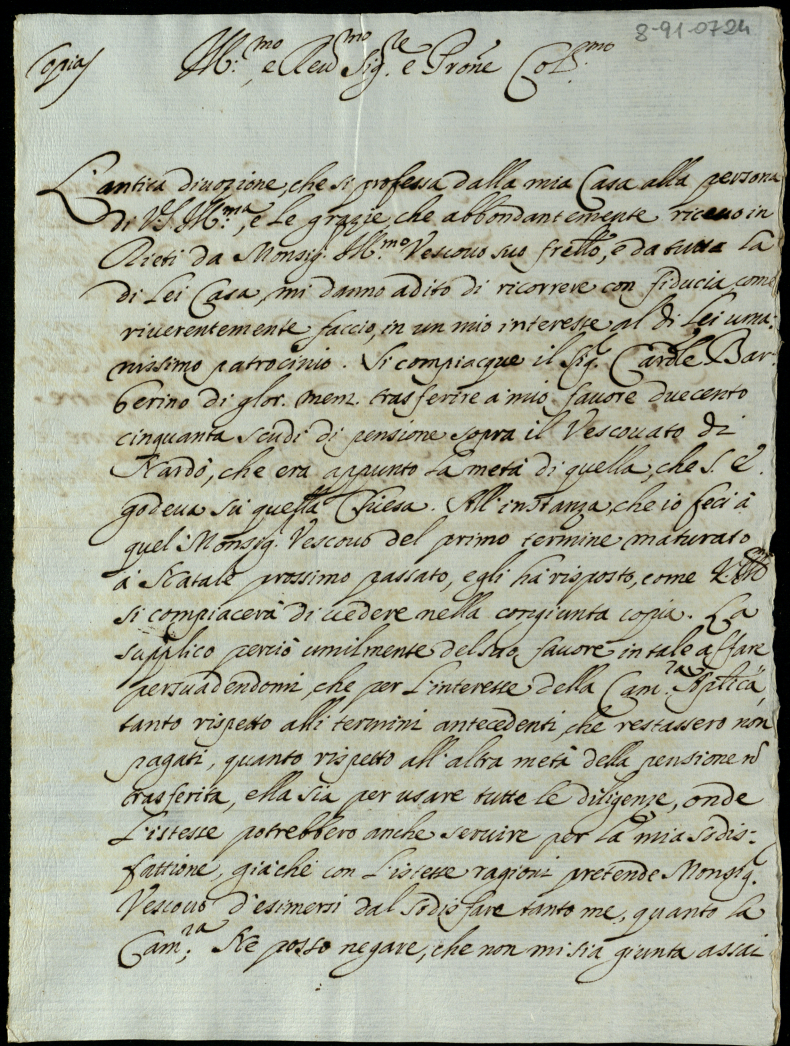 8-91-0724
Copia
Ill.mo e Reu.mo Sig.re e Prone Col.mo
L'antica diuozione, che si professa dalla mia Casa alla persona
di VS Ill.ma, e le grazie, che abbondantemente riceuo in
Rieti da Monsig. Ill.mo Vescouo suo frello, e da tutta la
di Lei Casa, mi danno adito di ricorrere con fiducia, come
riuerentemente faccio, in un mio interesse al di Lei uma:
nissimo patrocinio. Si compiacque il Sig. Cardle Bar:
berino di glor. mem. trasferire à mio fauore duecento
cinquanta scudi di pensione sopra il Vescouato di
Nardò, che era appunto la metà di quella, che S. E.
godeua sù quella Chiesa. All'instanza, che io feci à
quel Monsig. Vescouo del primo termine maturato
à Natale prossimo passato, egli hà risposto, come
si compiacerà di uedere nella congiunta copia. La
supplico perciò umilmente del suo fauore in tale affare
persuadendomi, che per l'interesse della Cam.ra Aplica,
tanto rispetto alli termini antecedenti, che restassero non
pagati, quanto rispetto all'altra metà della pensione nõ
trasferita, ella sia per usare tutte le diligenze, onde
l'istesse potrebbero anche seruire per la mia sodis:
fattione, giache con l'istesse ragioni pretende Monsig.
Vescouo d'esimersi dal sodisfare tanto me, quanto la
Cam.ra; Ne posso negare, che non mi sia giunta assai